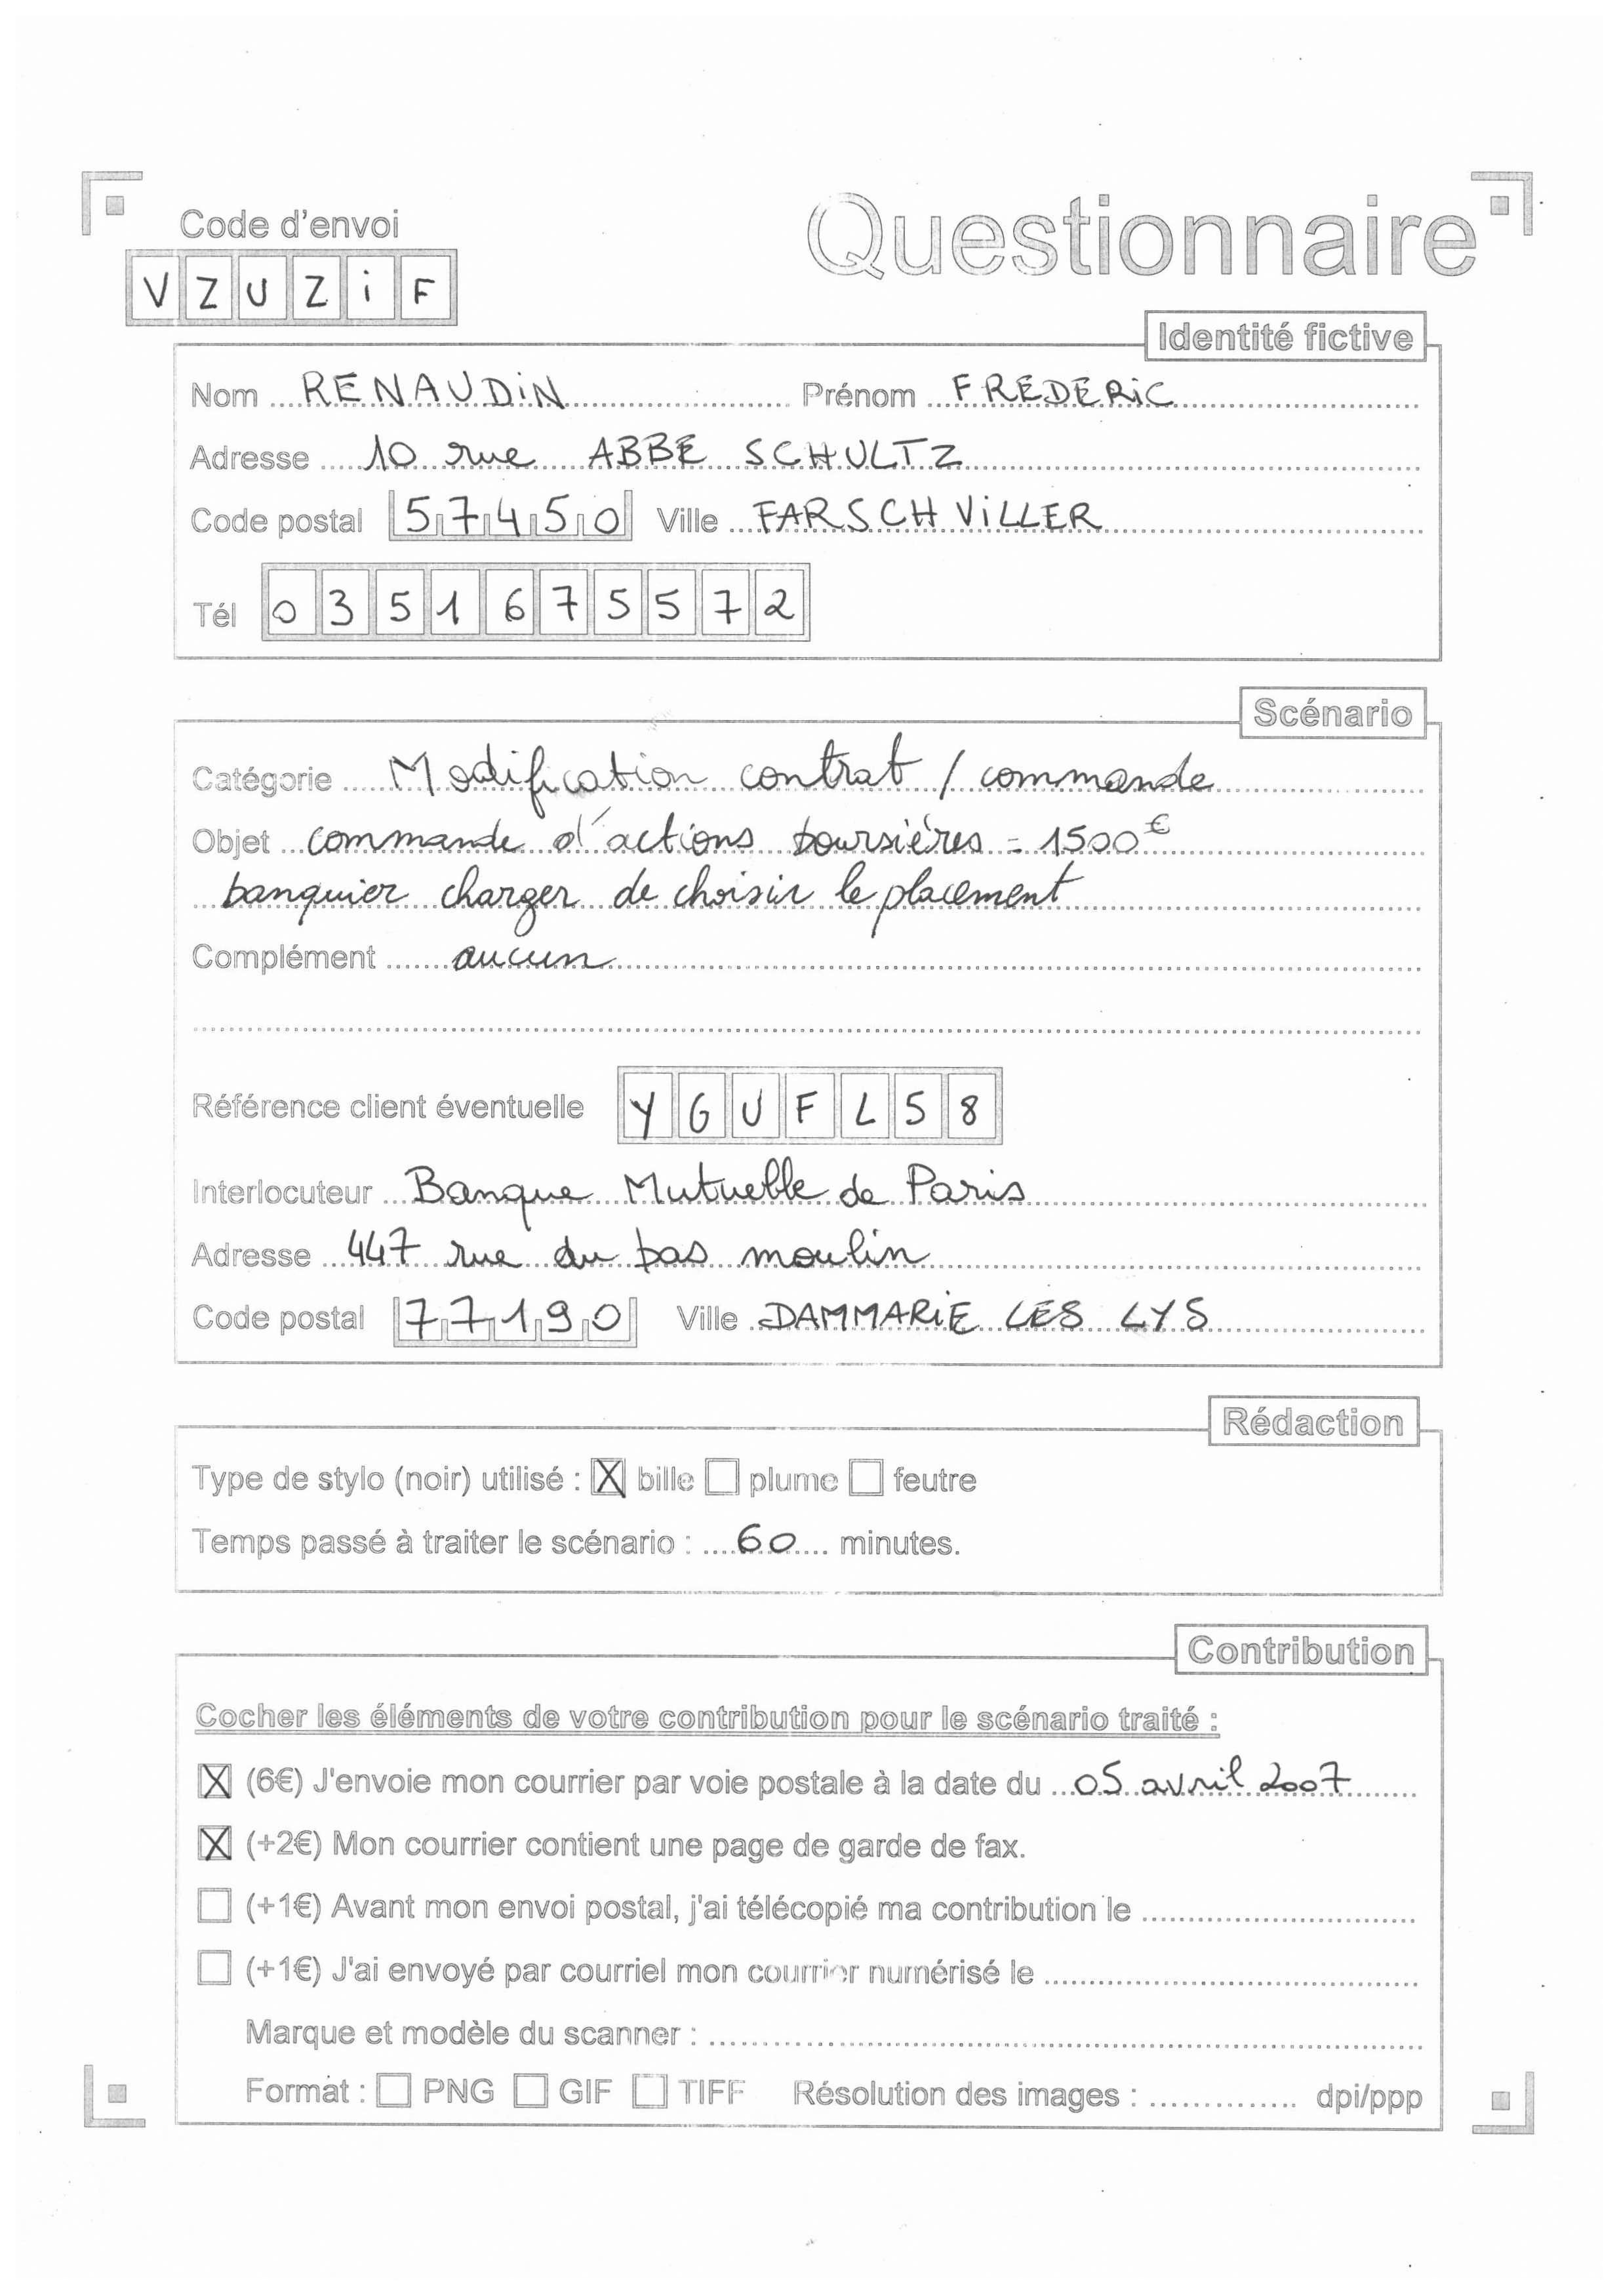 Code d'envoi
Questionnaire
VZUZiF
Identité fictive
Nom RENAUDiN Prénom FREDERiC
Adresse 10 rue ABBE SCHULTZ
Code postal 57450 Ville FARSCHViLLER
Tél 0351675572
Scénario
Catégorie Modification contrat / commande
Objet commande d'actions boursières = 1500€
banquier charger de choisir le placement
Complément aucun
Référence client éventuelle YGUFL58
Interlocuteur Banque Mutuelle de Paris
Adresse 447 rue du bas moulin
Code postal 77190 Ville DAMMARiE LES LYS
Rédaction
Type de stylo (noir) utilisé : ☒ bille ☐ plume ☐ feutre
Temps passé à traiter le scénario : 60 minutes.
Contribution
Cocher les éléments de votre contribution pour le scénario traité :
☒ (6€) J'envoie mon courrier par voie postale à la date du 05 avril 2007
☒ (+2€) Mon courrier contient une page de garde de fax.
☐ (+1€) Avant mon envoi postal, j'ai télécopié ma contribution le
☐ (+1€) J'ai envoyé par courriel mon courrier numérisé le
Marque et modèle du scanner :
Format : ☐ PNG ☐ GIF ☐ TIFF Résolution des images : dpi/ppp